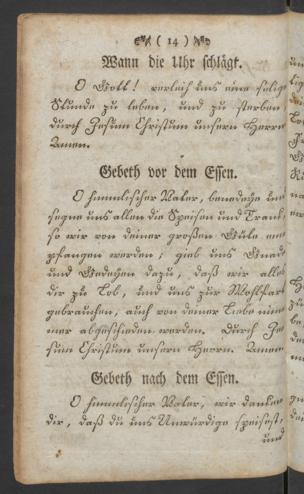 ( 14 )
Wann die Uhr schlägt.
O Gott! verleih uns eine selige
Stunde zu leben, und zu sterben
durch Jesum Christum unsern Herrn
Amen.
Gebeth vor dem Essen.
O himmlischer Vater, benedeye und
segne uns allen die Speisen und Trank,
so wir von deiner großen Güte em-
pfangen werden; gieb uns Gnade
und Gedeyen dazu, daß wir alles
dir zu Lob, und uns zur Wohlfart
gebrauchen, auch von deiner Liebe nim-
mer abgeschieden werden. Durch Je-
sum Christum unsern Herrn. Amen.
Gebeth nach dem Essen.
O himmlischer Vater, wir danken
dir, daß du uns Unwürdige speisest,
und